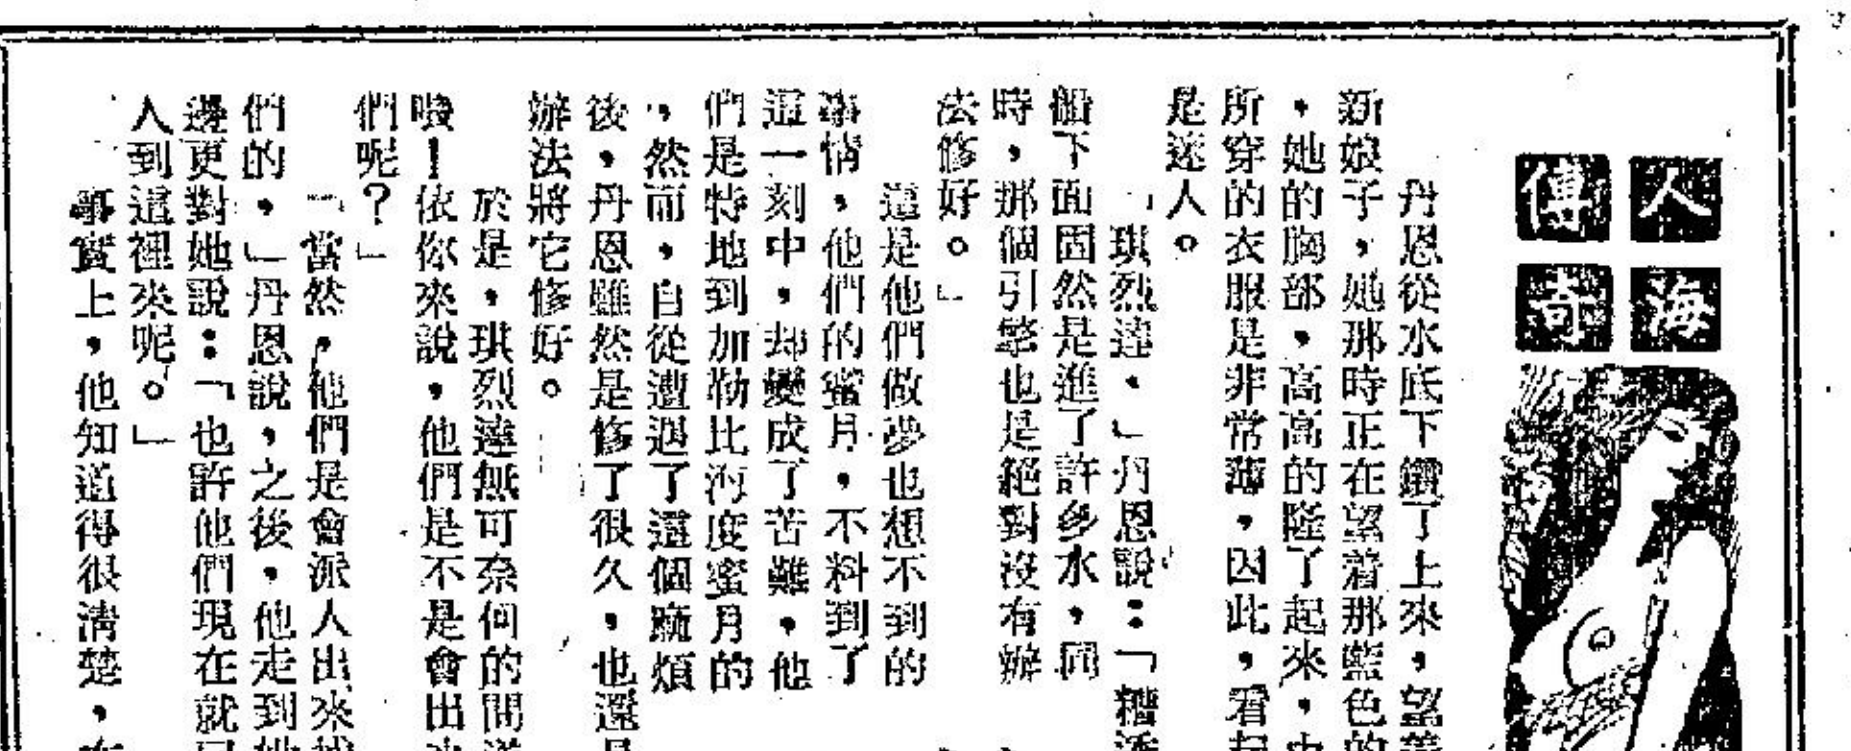 人海傳奇
丹恩從水底下鑽了上來,望着
新娘子,她那時正在望着那藍色的
,她的胸部,高高的隆了起來,
所穿的衣服是非常薄,因此,看起
是迷人。
「琪烈達,」丹恩說:「糟
船下面固然是進了許多水,同
時,那個引擎也是絕對沒有辦
法修好。」
這是他們做夢也想不到的
事情,他們的蜜月,不料到了
這一刻中,却變成了苦難,他
們是特地到加勒比海度蜜月的
,然而,自從遭遇了這個麻煩
後,丹恩雖然是修了很久,也還是
辦法將它修好。
於是,琪烈達無可奈何的問道
唉!依你來說,他們是不是會出
們呢?」
「當然,他們是會派人出來找
們的,」丹恩說,之後,他走到她
邊更對她說:「也許他們現在就
人到這裡來呢。」
事實上,他知道得很清楚,在